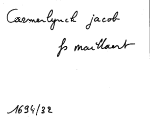 Caemerlynck jacob
fs maillaert
1694/32